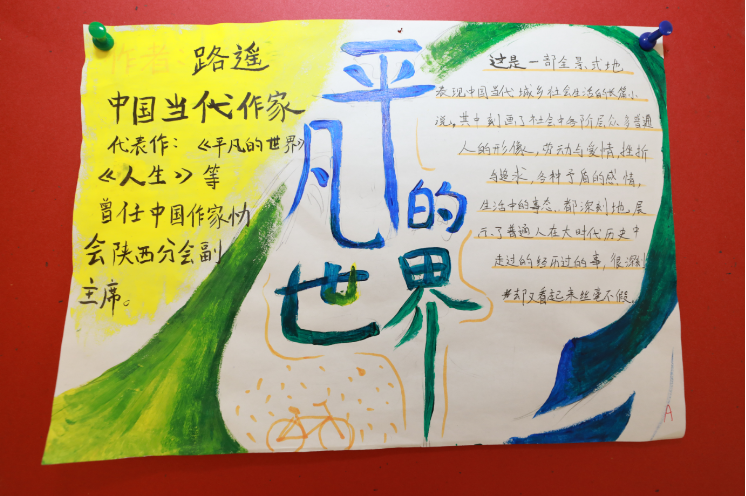 作者：路遥
中国当代作家
代表作：《平凡的世界》
《人生》等
曾任中国作家协
会陕西分会副
主席。
平凡的世界
这是一部全景式地
表现中国当代城乡社会生活的长篇小
说，其中刻画了社会中各阶层众多普通
人的形像，劳动与爱情，挫折
与追求，各种矛盾的感情，
生活中的事态，都深刻地展
示了普通人在大时代历史中
走过的经历过的事，很深
却又看起来丝毫不假。
A